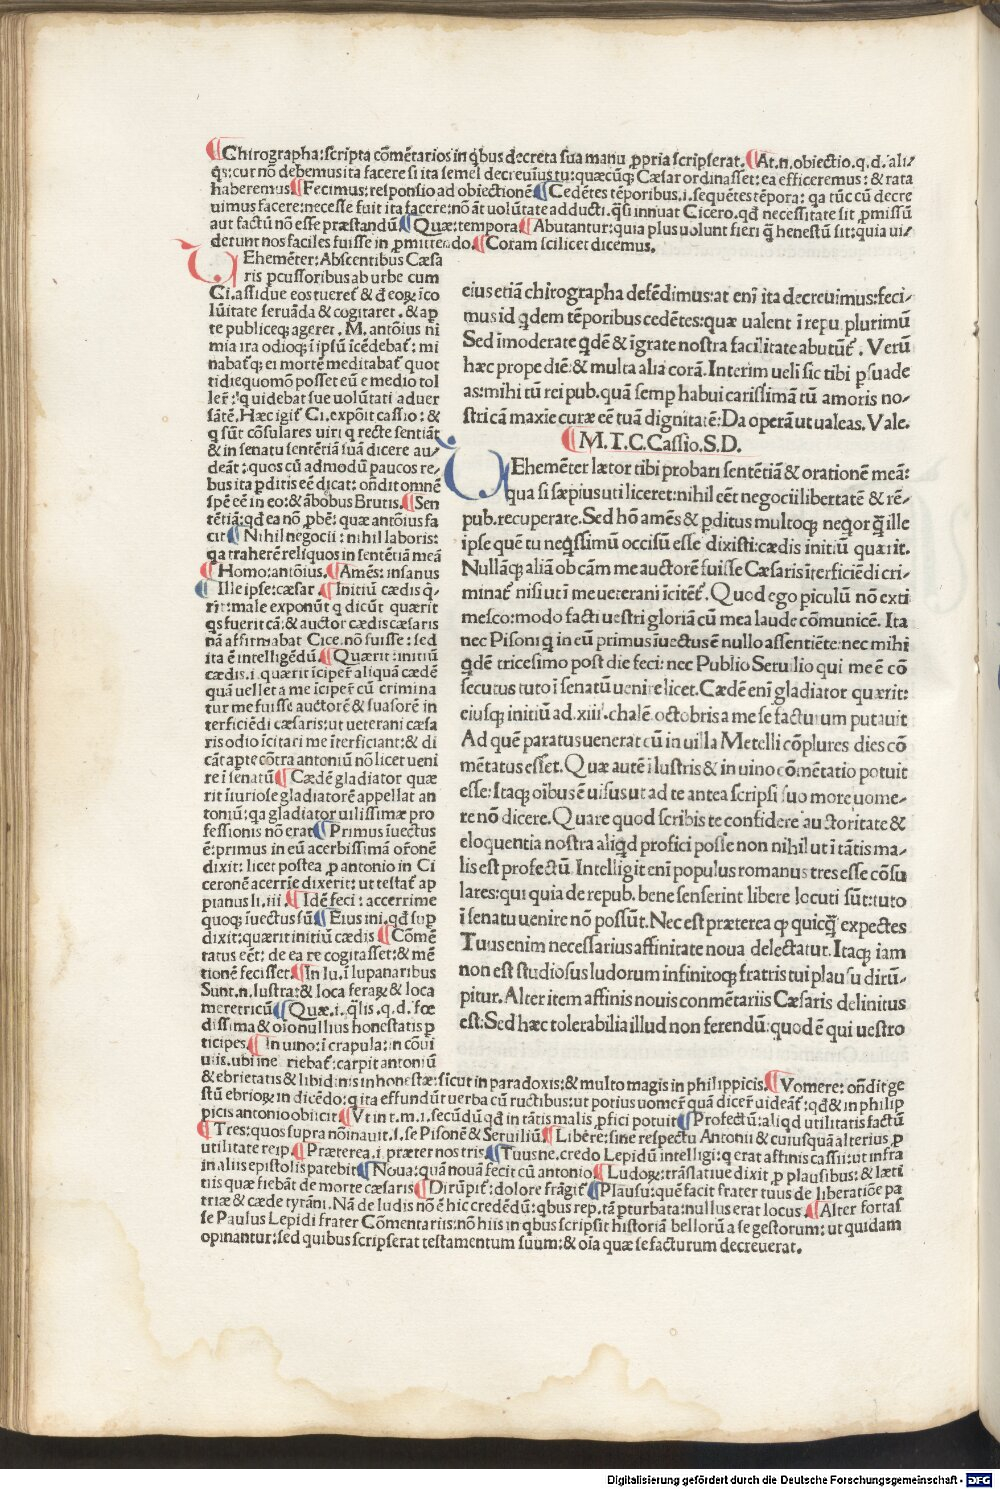 ¶Chirographa: scripta cõmẽtarios in qbus decreta sua manu ꝓpria scripserat. ¶At.n.obiectio.q.d.ali-
qs: cur nõ debemus ita facere si ita semel decreuius tu: quæcũqꝫ Cæsar ordinasset: ea efficeremus: & rata
haberemus ¶Fecimus: responsio ad obiectionẽ ¶Cedẽtes tẽporibus.i.sequẽtes tẽpora: qa tũc cũ decre
uimus facere: necesse fuit ita facere: nõ ãt uolũtate adducti. qsi innuat Cicero. qd necessitate sit ꝓmissũ
aut factũ nõ esse præstandũ ¶Quæ: tempora ¶Abutantur: quia plus uolunt fieri q̃ honestũ sit: quia ui/
derunt nos faciles fuisse in ꝓmittendo. ¶Coram scilicet dicemus.
UEhemẽter: Abscentibus Cæsa
ris ꝑcussoribus ab urbe cum
Ci. assidue eos tueret̃ & d̃ eoꝝ ĩco
lũitate seruãda & cogitaret. & aꝑ
te publiceqꝫ ageret. M. antõius ni
mia ira odioqꝫ ĩ ipsũ ĩcẽdebat̃: mi
nabat̃qꝫ ei mortẽ meditabat̃ quot
tidie quomõ posset eũ e medio tol
ler̃: ꝗ uidebat̃ sue uolũtati aduer
sãtẽ. Hæc igit̃ Ci. expõit cassio: &
q sũt cõsulares uiri q recte sentiãt
& in senatu sentẽtiã suã dicere au/
deãt: quos cũ admodũ paucos re/
bus ita ꝑditis eẽ dicat: oñdit omnẽ
spẽ eẽ in eo: & ãbobus Brutis. ¶Sen
tẽtiã: qd ea nõ ꝓbẽ: quæ antõius fa
cit ¶Nihil negocii: nihil laboris:
qa traherẽ reliquos in sentẽtiã meã
¶Homo: antõius. ¶Amẽs: insanus
¶Ille ipse: cæsar. ¶Initiũ cædis q̃-
rit: male exponũt q dicũt quærit
qs fuerit cã: & auctor cædis cæsaris
nã affirmabat Cice. nõ fuisse: sed
ita ẽ intelligẽdũ. ¶Quærit: initiũ
cædis. i. quærit ĩciper̃ aliquã cædẽ
quã uellet a me ĩciper̃ cũ crimina
tur me fuisse auctorẽ & suasorẽ in
terficiẽdi cæsaris: ut ueterani cæsa
ris odio ĩcitari me ĩterficiant: & di
cãt aꝑte cõtra antoniũ nõ licet ueni
re ĩ senatũ ¶Cædẽ gladiator quæ
rit ĩiuriose gladiatorẽ appellat an
toniũ: qa gladiator uilissimæ pro
fessionis nõ erat ¶Primus ĩuectus
ẽ: primus in eũ acerbissimã or̃onẽ
dixit: licet postea ꝓ antonio in Ci
ceronẽ acerrie dixerit: ut testat̃ ap
pianus li.iii. ¶Idẽ feci: accerrime
quoqꝫ ĩuectus sũ ¶Eius ini. qd sup
dixit: quærit initiũ cædis ¶Cõmẽ
tatus eẽt: de ea re cogitasset: & mẽ
tionẽ fecisset. ¶In lu. ĩ lupanaribus
Sunt.n.lustra: & loca feraꝝ & loca
meretricũ ¶Quæ.i.q̃lis.q.d.fœ
dissima & oĩo nullius honestatis ꝑ
ticipes. ¶In uino: ĩ crapula: in cõui
uiis. ubi ine riebat̃: carpit antoniũ
& ebrietatis & libidinis inhonestæ: sicut in paradoxis: & multo magis in philippicis. ¶Vomere: oñdit ge
stũ ebrioꝝ in dicẽdo: q ita effundũt uerba cũ ructibus: ut potius uomer̃ quã dicer̃ uideãt̃: qd & in philip
picis antonio obiicit ¶Vt in t.m.i.secũdũ qd in tãtis malis ꝓfici potuit ¶Profectũ: aliqd utilitatis factũ
¶Tres: quos supra nõinauit.i.se Pisonẽ & Seruiliũ ¶Libere: sine respectu Antonii & cuiusquã alterius ꝓ
utilitate reip. ¶Præterea.i.præter nos tris. ¶Tuus ne. credo Lepidũ intelligi: q erat affinis cassii: ut infra
in aliis epistolis patebit ¶Noua: quã nouã fecit cũ antonio ¶Ludoꝝ: trãslatiue dixit ꝓ plausibus: & læti
tiis quæ fiebãt de morte cæsaris ¶Dirũpit̃: dolore frãgit̃ ¶Plausu: quẽ facit frater tuus de liberatiõe pa
triæ & cæde tyrãni. Nã de ludis nõ ẽ hic credẽdũ: qbus rep. tã ꝑturbata: nullus erat locus ¶Alter fortas
se Paulus Lepidi frater Cõmentariis: nõ hiis in qbus scripsit historiã bellorũ a se gestorum: ut quidam
opinantur: sed quibus scripserat testamentum suum: & oĩa quæ se facturum decreuerat.
eius etiã chirographa defẽdimus: at enĩ ita decreuimus: feci/
mus id qdem tẽporibus cedẽtes: quæ ualent ĩ repu. plurimũ
Sed ĩmoderate qdẽ & ĩgrate nostra facilitate abutũt̃. Verũ
hæc prope diẽ: & multa alia corã. Interim ueli sic tibi ꝑsuade
as: mihi tũ rei pub. quã semꝑ habui carissimã tũ amoris no/
stri cã maxie curæ eẽ tuã dignitatẽ: Da operã ut ualeas. Vale.
¶M.T.C.Cassio.S.D.
UEhemẽter lætor tibi probari sentẽtiã & orationẽ meã:
qua si sæpius uti liceret: nihil eẽt negocii libertatẽ & rẽ/
pub. recuperare. Sed hõ amẽs & ꝑditus multoqꝫ neqor q̃ ille
ipse quẽ tu neqssimũ occisũ esse dixisti: cædis initiũ quærit.
Nullãqꝫ aliã ob cãm me auctorẽ fuisse Cæsaris ĩterficiẽdi cri/
minat̃ nisi ut ĩ me ueterani ĩcitẽt̃. Quod ego ꝑiculũ nõ exti
mesco: modo facti uestri gloriã cũ mea laude cõmunicẽ. Ita
nec Pisoni q in eũ primus ĩuectus ẽ nullo assentiẽte: nec mihi
qdẽ tricesimo post die feci: nec Publio Seruilio qui me ẽ cõ
secutus tuto ĩ senatũ uenire licet. Cædẽ enĩ gladiator quærit:
eiusqꝫ initiũ ad.xiii'.chalẽ.octobris a me se facturum putauit
Ad quẽ paratus uenerat cũ in uilla Metelli cõplures dies cõ
mẽtatus esset. Quæ autẽ ĩ lustris & in uino cõmẽtatio potuit
esse: Itaqꝫ oibus ẽ uisus ut ad te antea scripsi suo more uome/
re nõ dicere. Quare quod scribis te confidere auctoritate &
eloquentia nostra aliqd profici posse non nihil ut ĩ tãtis ma/
lis est profectũ. Intelligit enĩ populus romanus tres esse cõsu
lares: qui quia de repub. bene senserint libere locuti sũt: tuto
ĩ senatu uenire nõ possũt. Nec est præterea qꝫ quicq̃ expectes
Tuus enim necessarius affinitate noua delectatur. Itaqꝫ iam
non est studiosus ludorum infinitoqꝫ fratris tui plausu dirũ/
pitur. Alter item affinis nouis conmẽtariis Cæsaris delinitus
est: Sed hæc tolerabilia illud non ferendũ: quod ẽ qui uestro
Digitalisierung gefördert durch die Deutsche Forschungsgemeinschaft - DFG